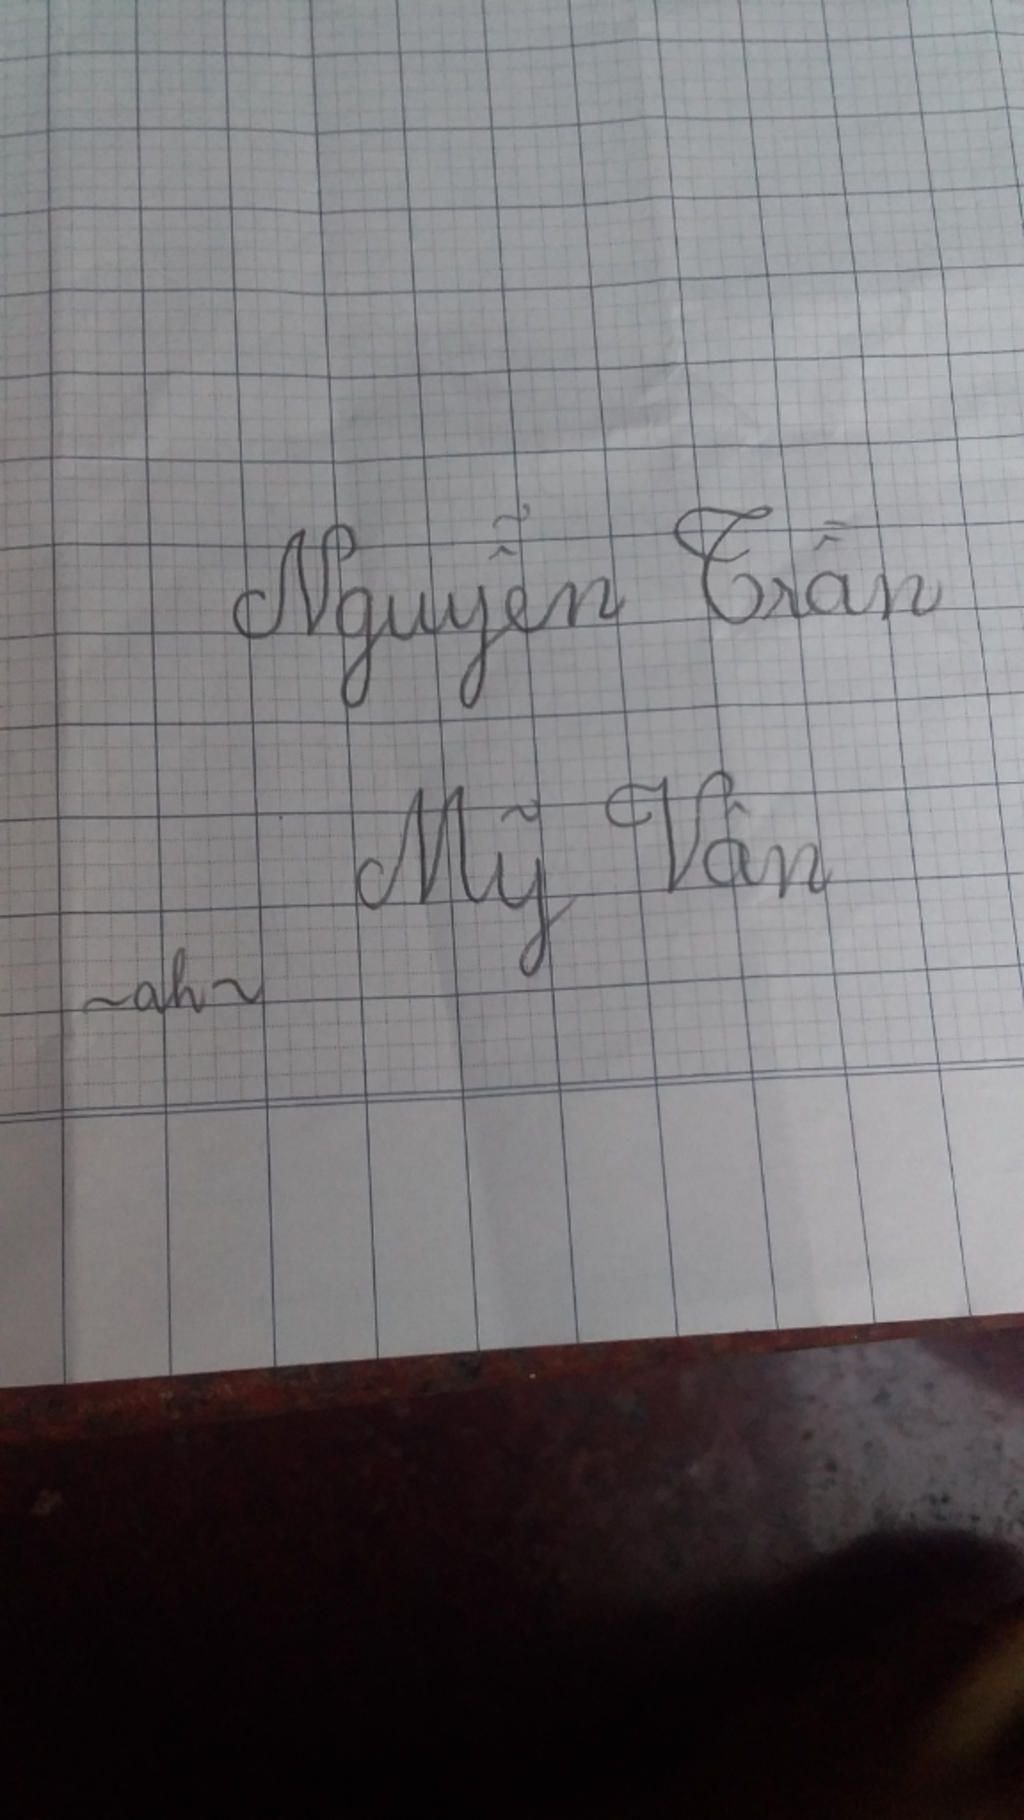 Nguyễn Trần
Mỹ Vân
~ah~